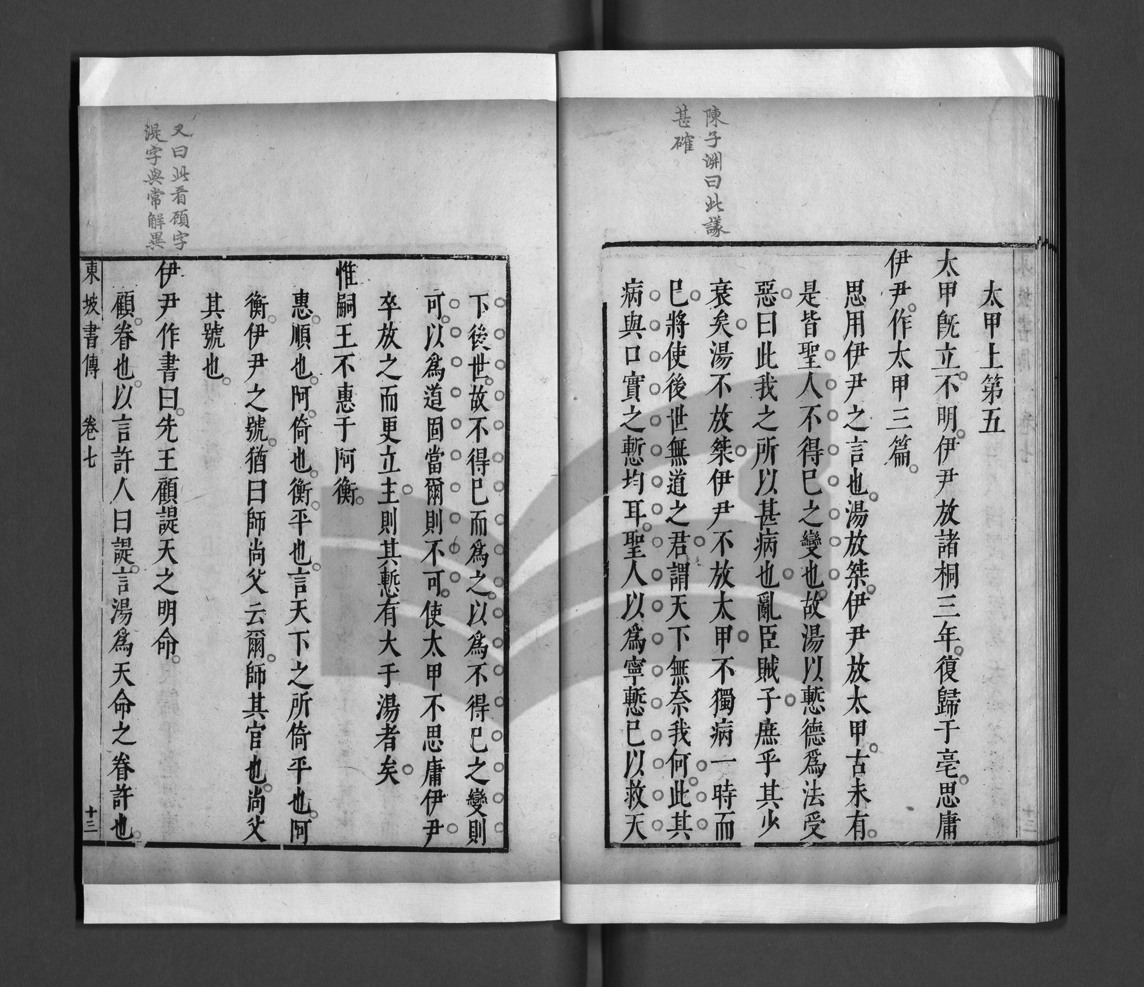 陳子淵曰此議
甚確
太甲上第五
太甲旣立不明伊尹放諸桐三年復歸于亳思庸
伊尹作太甲三篇
思用伊尹之言也湯放桀伊尹放太甲古未有
是皆聖人不得已之變也故湯以慙德爲法受
惡曰此我之所以甚病也亂臣賊子庶乎其少
衰矣湯不放桀伊尹不放太甲不獨病一時而
已將使後世無道之君謂天下無奈我何此其
病與口實之慙均耳聖人以爲寧慙已以救天
又曰此看顧字
諟字與常解異
下後世故不得已而爲之以爲不得已之變則
可以爲道固當爾則不可使太甲不思庸伊尹
卒放之而更立主則其慙有大于湯者矣
惟嗣王不惠于阿衡
惠順也阿倚也衡平也言天下之所倚平也阿
衡伊尹之號猶曰師尚父云爾師其官也尚父
其號也
伊尹作書曰先王顧諟天之明命
顧眷也以言許人曰諟言湯爲天命之眷許也
東坡書傳 卷七 十三